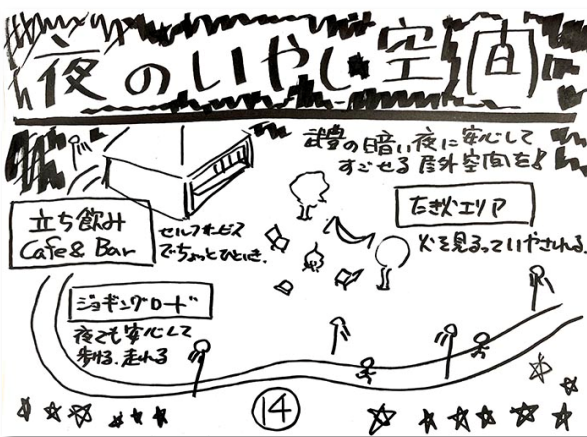 夜のいやし空間
武豊の暗い夜に安心して
すごせる屋外空間を!
立ち飲み
Cafe & Bar
セルフサービス
でちょっとひといき.
たき火エリア
火を見るっていやされる.
ジョギングロード
夜でも安心して
歩ける.走れる
14